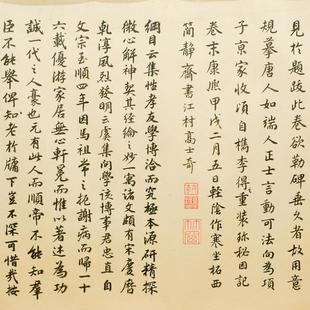 見於題跋此卷欲勒碑垂久者故用意
規摹唐人如端人正士言動可法向為項
子京家收頃自檇李得重裝珎秘因記
卷末康熙甲戌二月五日輕陰作寒坐柘西
簡靜齋書江村高士奇
綱目云集性孝友學博洽而究極本源研精探
微心解神契其經綸之妙一寓諸文頗有宋慶曆
乾淳風烈發明云虞集向學該博事君忠直自
文宗至順四年因馬祖常之抱謝病而歸一十
六載優游家居無心軒冕而惟以著述為功
誠一代之人豪也元有此人而順帝不能知羣
臣不能舉俾知老於牖下豈不深可惜哉按